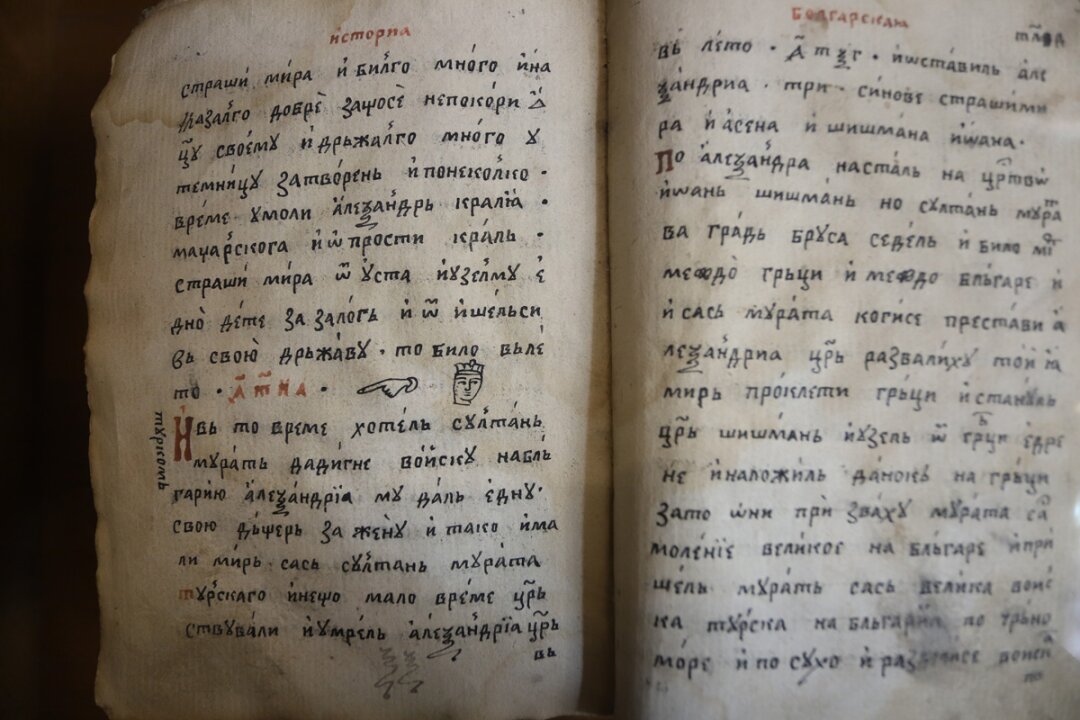 исторїа
страши мира и билго много и на
казалго добрѐ защосѐ непокори
цр҃ꙋ своемꙋ и држалго много ꙋ
темницꙋ затворень и понеколко ·
време ꙋмоли алеѯандрь кралїа ·
маџарскога и ѿпрости краль ·
страши мира ѿ ꙋста и ꙋзелмꙋ е
днò дете за залогь и ѿ ишельси
вь свою державꙋ · то било вьле
то ·
И вь то време хотель сꙋлтань
мꙋрать дадигне войскꙋ на бль
гарию алеѯандрїа мꙋ даль еднꙋ ·
свою дьщерь за женꙋ и тако има
ли мирь · сась сꙋлтань мꙋрата
тꙋрскаго и нещо мало време цр҃ь
ствꙋвали и ꙋмрель алеѯандрїа цр҃ь
вь
тꙋркомь
болгарскаѧ
вь лето · и ѡставиль але
ѯандриа · три · синове страшими
ра и асена и шишмана иѡана ·
По алеѯандра насталь на цр҃тво
иѡань шишмань но сꙋлтань мꙋра
ва градь брꙋса седель и било
междо грьци и междо бльгаре и
и сась мꙋрата когисе престави а
леѯандриа цр҃ь развалихꙋ той
мирь проклети грьци и станꙋль
цр҃ь шишмань и ꙋзель ѿ грьци едре
не и наложиль данокь на грьци
зато ѡни призвахꙋ мꙋрата са
моленїе великое на бльгаре и при
шель мꙋрать сась велика войс
ка тꙋрска на бльгарїа по
море и по сꙋхо и